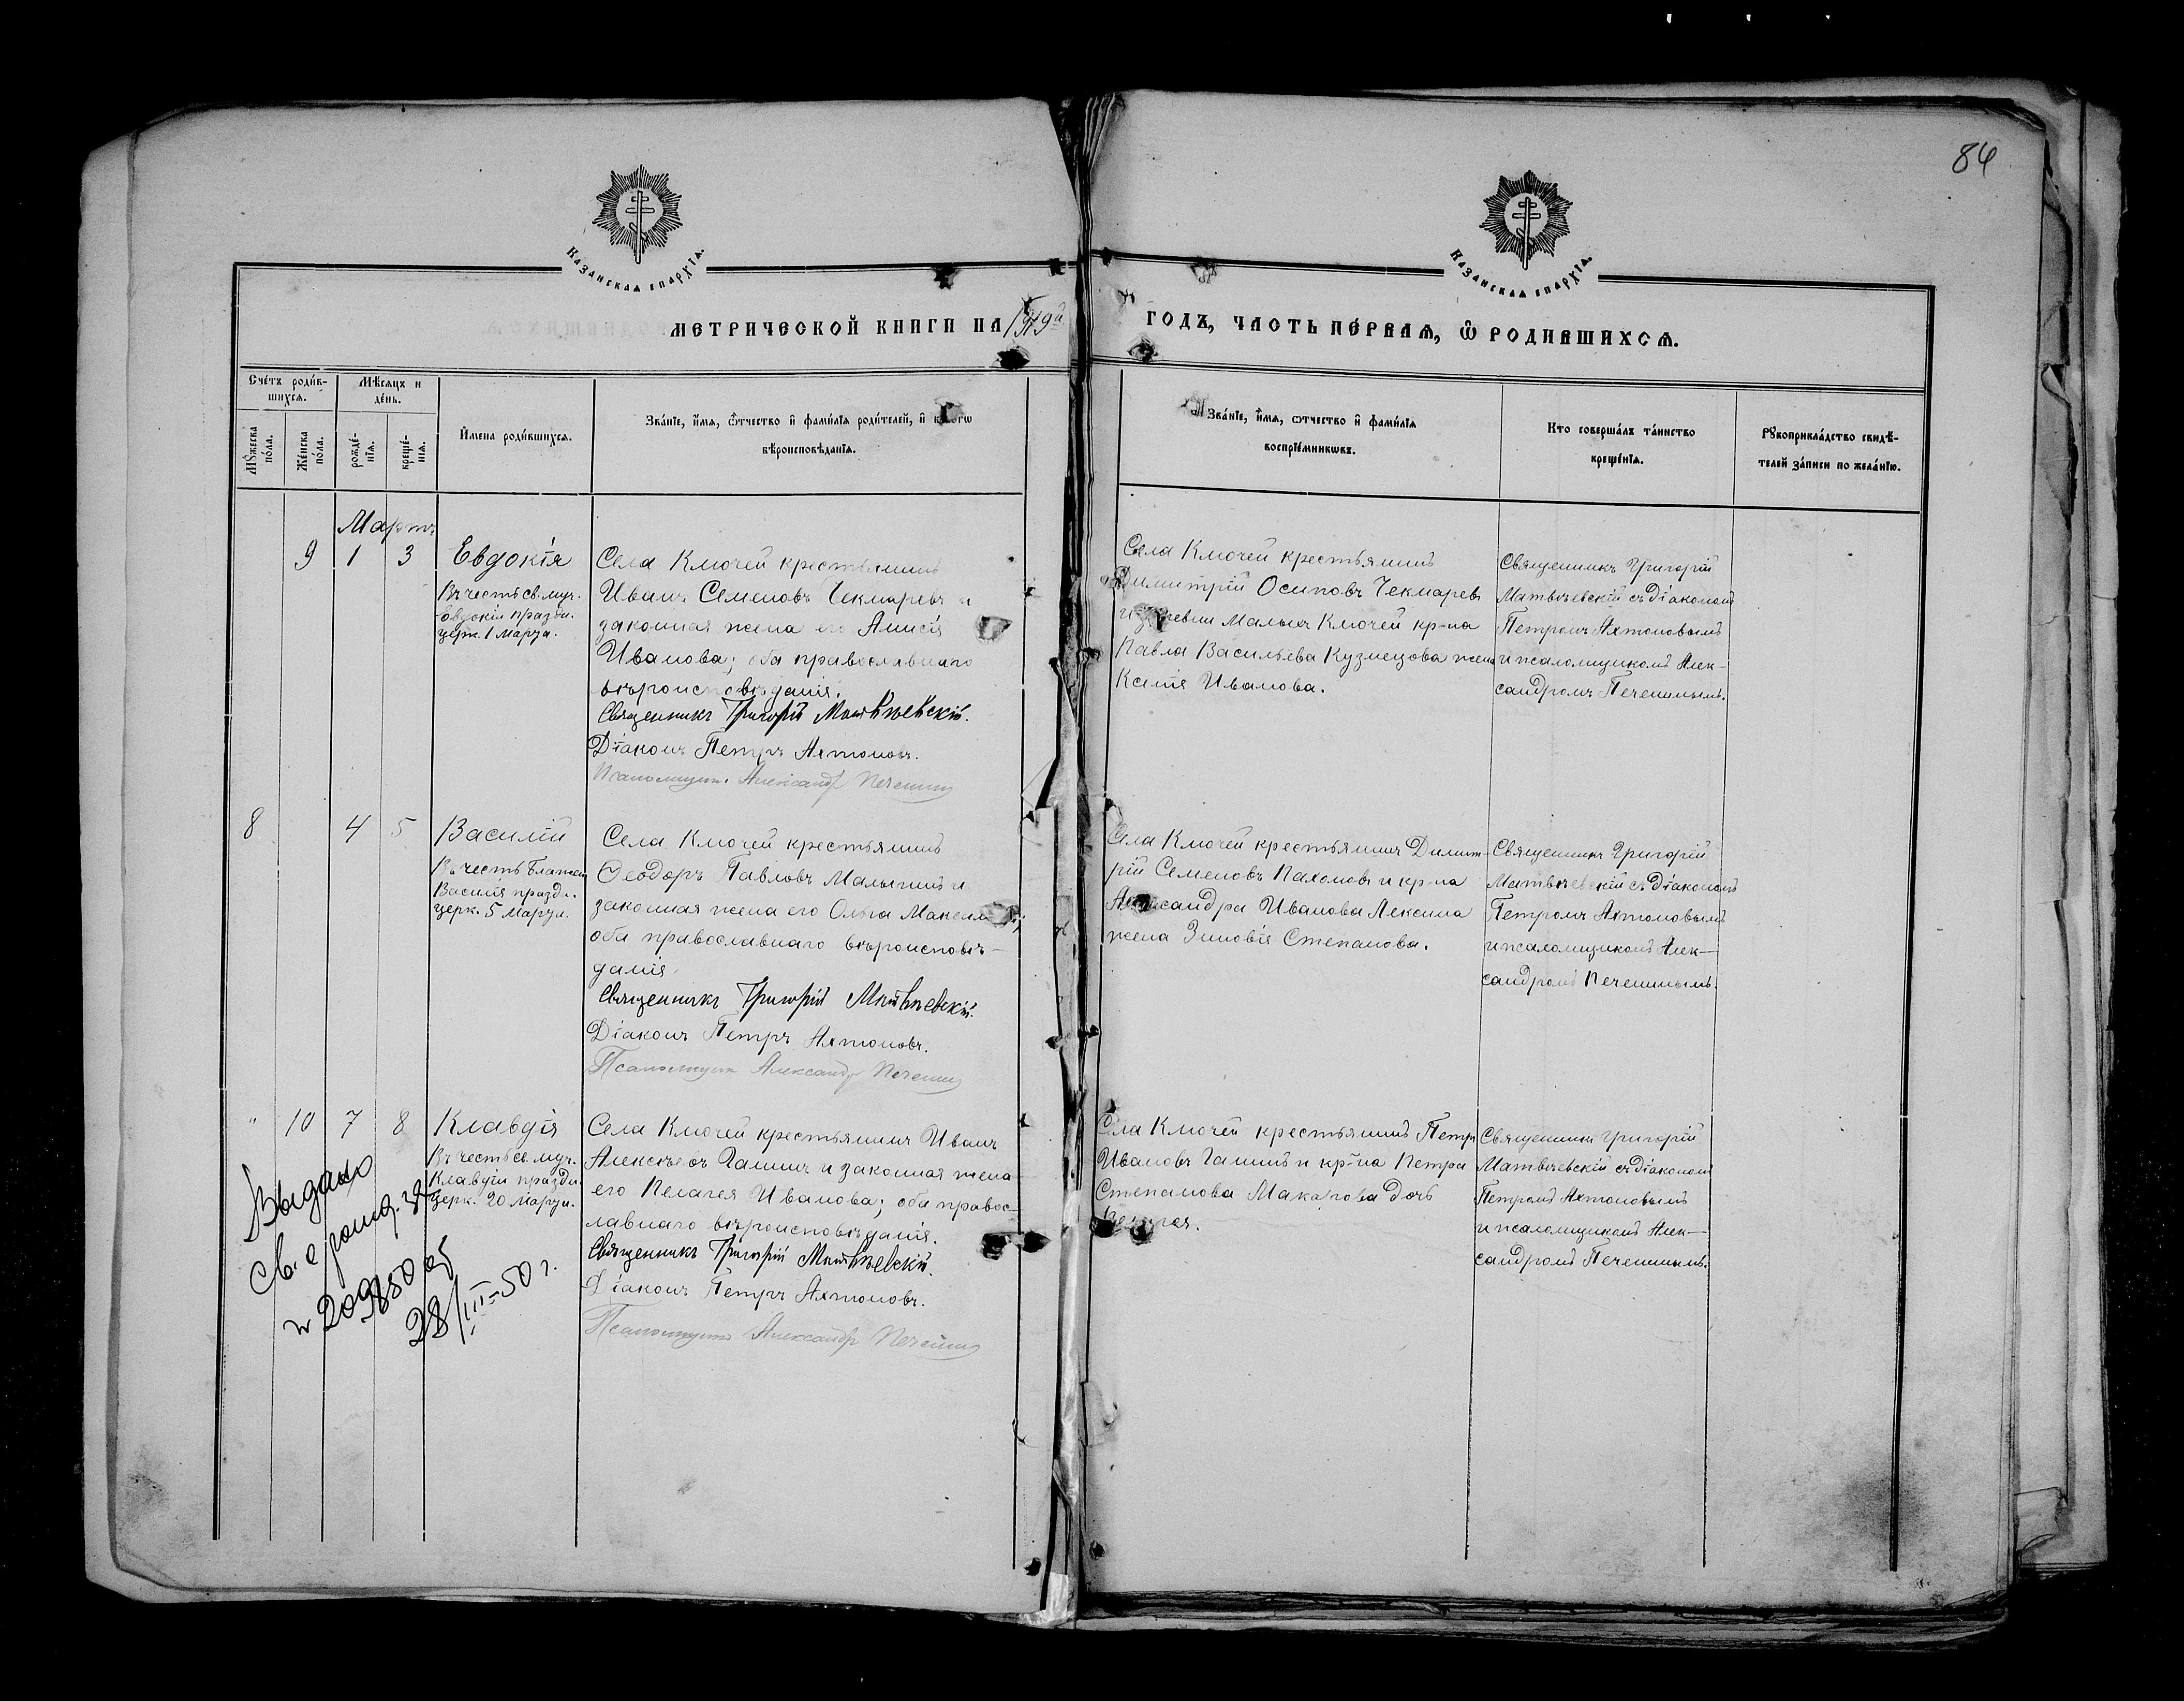 84
Казанскаѧ епархїѧ.
Казанскаѧ епархїѧ.
Метрической книги на 1919й
годъ, часть пе́рваѧ, ѽ родившихсѧ.
Сче́тъ роди́в-
шихсѧ.
Мѣ́сѧцъ и
де́нь.
Мꙋ́жеска по́ла.
Же́нска по́ла.
рожде́-
нїѧ.
креще́-
нїѧ.
И҆мена роди́вшихсѧ.
Зва́нїе, и҆́мѧ, ѻ҆́тчество и҆ фами́лїѧ роди́телей, и҆ когѡ
вѣроисповѣ́данїѧ.
Зва́нїе, и҆́мѧ, ѻтчество и҆ фами́лїѧ
воспрїе́мникѡвъ.
Кто соверша́лъ та́инство
креще́нїѧ.
Рꙋкоприкла́дство свидѣ́-
телей за́писи по жела́нїю.
Мартъ
9 1 3 Евдокія
Въ честь св. муч.
Евдокіи праздн.
церк. 1 Марта.
Села Ключей крестьянинъ
Иванъ Семеновъ Чекмаревъ и
законная жена его Анисія
Иванова; оба православнаго
вѣроисповѣданія.
Священникъ Григорій Матвѣевскій.
Діаконъ Петръ Ахтоновъ.
Псаломщикъ Александръ Печенинъ
Села Ключей крестьянинъ
Димитрій Осиповъ Чекмаревъ
и деревни Малыхъ Ключей кр-на
Павла Васильева Кузнецова жена
Ксенія Иванова.
Священникъ Григорій
Матвѣевскій съ діакономъ
Петромъ Ахтоновымъ
и псаломщикомъ Алек-
сандромъ Печенинымъ.
8 4 5 Василій
Въ честь Блажен
Василія праздн.
церк. 5 Марта.
Села Ключей крестьянинъ
Ѳеодоръ Павловъ Малышъ и
законная жена его Ольга Максим
оба православнаго вѣроисповѣ-
данія.
Священникъ Григорій Матвѣевскій.
Діаконъ Петръ Ахтоновъ.
Псаломщикъ Александръ Печенинъ
Села Ключей крестьянинъ Димит-
рій Семеновъ Пахомовъ и кр-на
Александра Иванова Лексина
жена Зиновія Степанова.
Священникъ Григорій
Матвѣевскій съ діакономъ
Петромъ Ахтоновымъ
и псаломщикомъ Алек-
сандромъ Печенинымъ.
" 10 7 8 Клавдія
Въ честь св. муч.
Клавдіи праздн.
церк. 20 Марта.
Села Ключей крестьянинъ Иванъ
Алексѣевъ Ганинъ и законная жена
его Пелагея Иванова; оба правос-
лавнаго вѣроисповѣданія.
Священникъ Григорій Матвѣевскій.
Діаконъ Петръ Ахтоновъ.
Псаломщикъ Александръ Печенинъ
Села Ключей крестьянинъ Петръ
Ивановъ Ганинъ и кр-на Петра
Степанова Макарова дочь
Священникъ Григорій
Матвѣевскій съ діакономъ
Петромъ Ахтоновымъ
и псаломщикомъ Алек-
сандромъ Печенинымъ.
Выдано
Св. о рожд.
28/III-50 г.